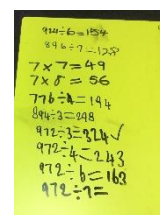 924÷6=154
896÷7=128
7×7=49
7×8=56
776÷4=194
894÷3=298
972÷3=324✓
972÷4=243
972÷6=163
972÷7=